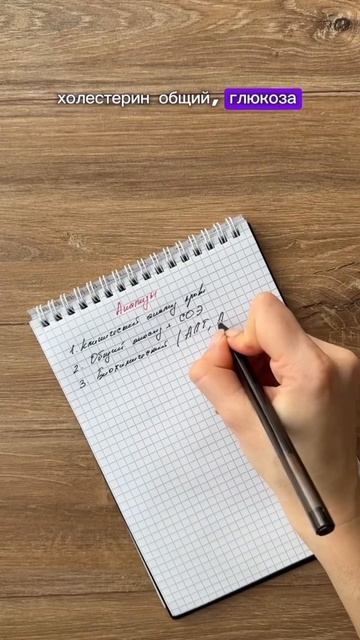 холестерин общий, глюкоза
Анализы
1. Клинический анализ крови
2. Общий анализ + СОЭ
3. Биохимический (АЛТ, А